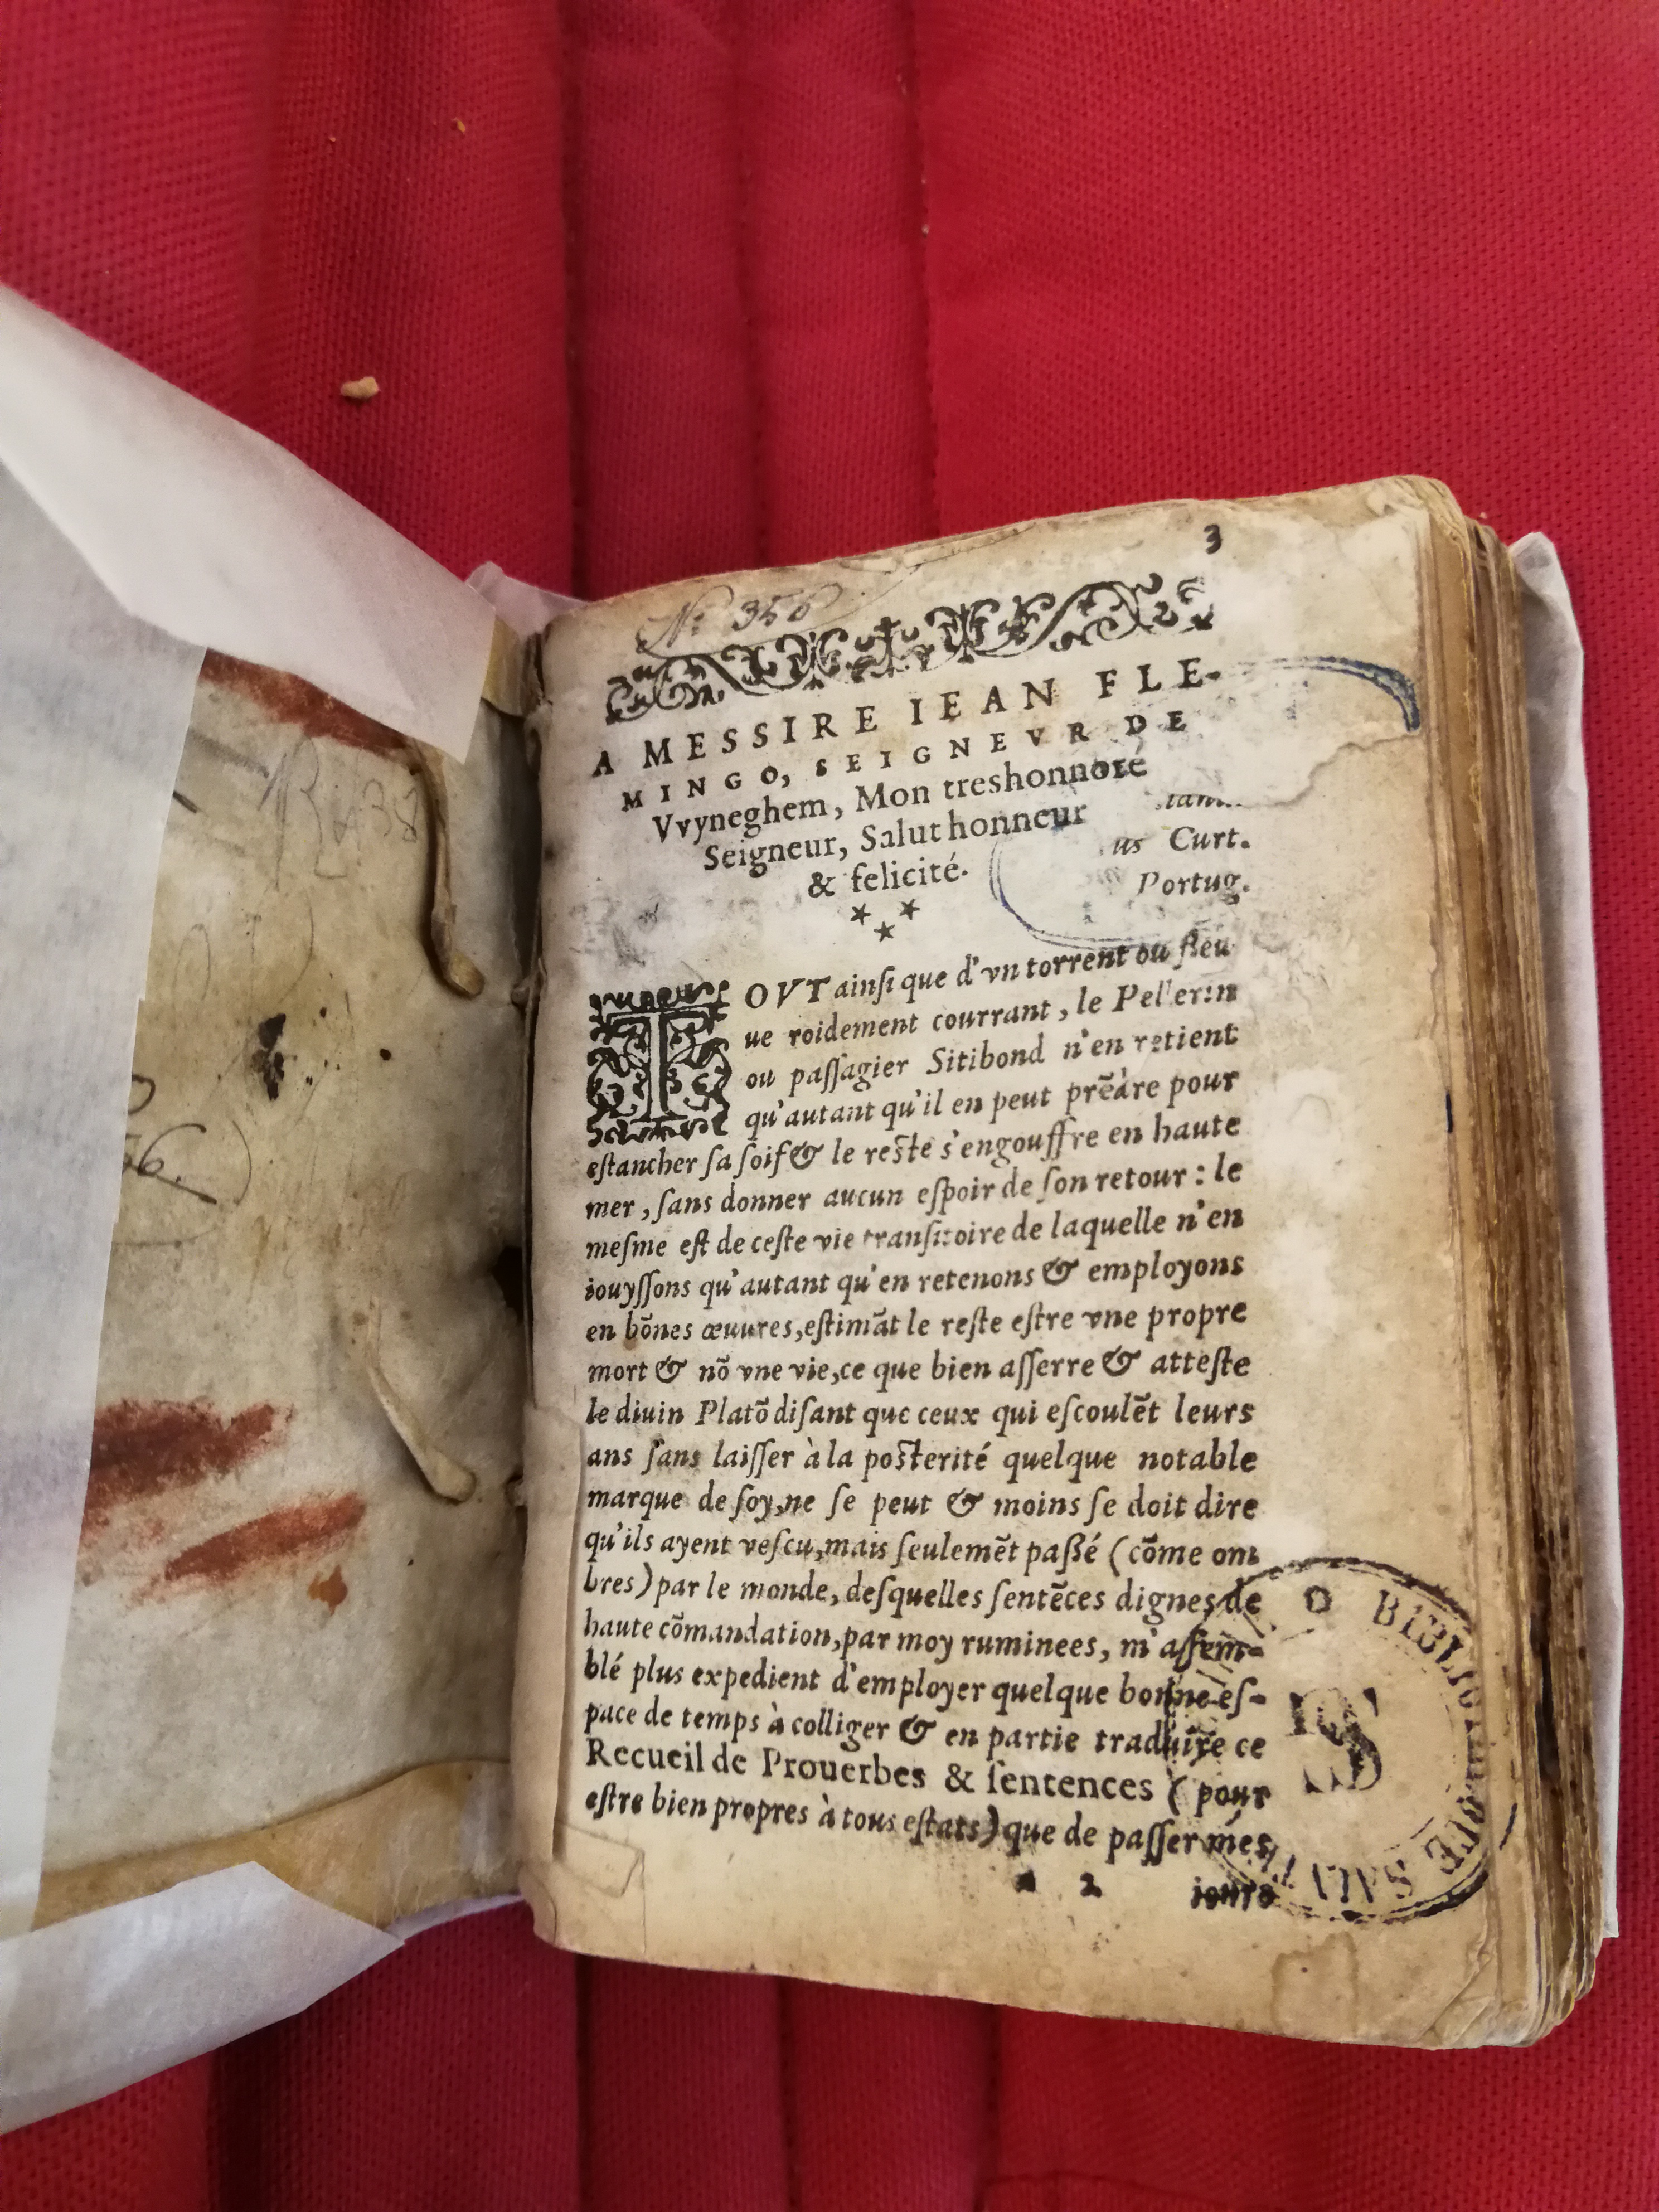 3
Nº 356
A MESSIRE IEAN FLE-
MINGO, SEIGNEVR DE
Vvyneghem, Mon treshonnoré
Seigneur, Salut honneur
& felicité.
us Curt.
Portug.
* * *
TOVT ainſi que d'vn torrent ou fleu
ue roidement courrant, le Pellerin
ou paſſagier Sitibond n'en retient
qu'autant qu'il en peut prẽdre pour
eſtancher ſa ſoif & le reſte s'engouffre en haute
mer, ſans donner aucun eſpoir de ſon retour : le
meſme eſt de ceſte vie tranſitoire de laquelle n'en
iouyſſons qu'autant qu'en retenons & employons
en bõnes œuures, eſtimãt le reſte eſtre vne propre
mort & nõ vne vie, ce que bien aſſerre & atteſte
le diuin Platõ diſant que ceux qui eſcoulẽt leurs
ans ſans laiſſer à la poſterité quelque notable
marque de ſoy, ne ſe peut & moins ſe doit dire
qu'ils ayent veſcu, mais ſeulemẽt paßé (cõme om
bres) par le monde, deſquelles ſentẽces dignes de
haute cõmandation, par moy ruminees, m'aſſem-
blé plus expedient d'employer quelque bonne eſ-
pace de temps à colliger & en partie traduire ce
Recueil de Prouerbes & ſentences (pour
eſtre bien propres à tous eſtats) que de paſſer mes
2
iours
BIBLIO